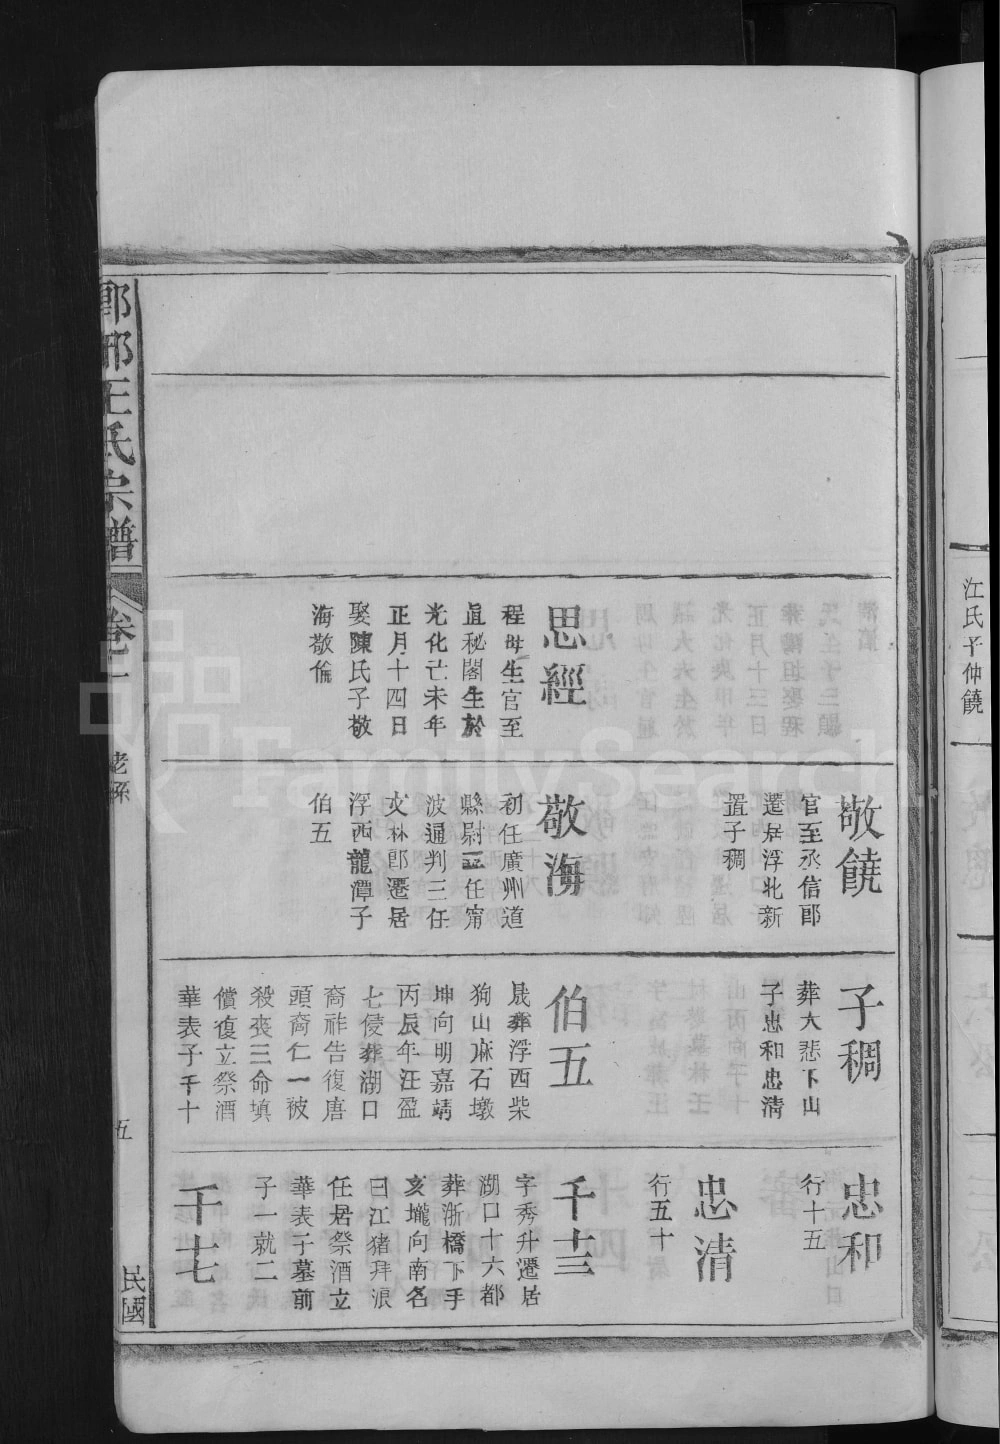 江氏子仲饒
思經
程母生官至
直秘閣生於
光化亡未年
正月十四日
娶陳氏子敬
海敬倫
敬饒
官至丞信郎
遷居浮北新
置子稠
敬海
初任廣州道
縣尉再任甯
波通判三任
文林郎遷居
浮西龍潭子
伯五
子稠
葬大悲下山
子忠和忠清
伯五
晟葬浮西柴
狗山麻石墩
坤向明嘉靖
丙辰年汪盈
七侵葬湖口
裔祚告復唐
頭裔仁一被
殺喪三命填
償復立祭酒
華表子千十
忠和
行十五
忠清
行五十
千十三
字秀升遷居
湖口十六都
葬浙橋下手
亥壠向南名
曰江猪拜浪
任居祭酒立
華表子墓前
子一就二
千七
郎邪王氏宗譜
卷一
老孫
五
民國
FamilySearch